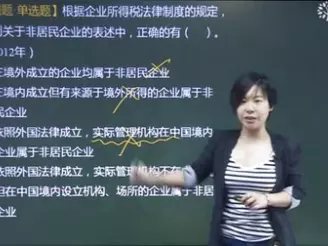 题 单选题】根据企业所得税法律制度的规定，
列关于非居民企业的表述中，正确的有（ ）。
012年）
在境外成立的企业均属于非居民企业
在境内成立但有来源于境外所得的企业属于非
民企业
依照外国法律成立，实际管理机构在中国境内
企业属于非居民企业
依照外国法律成立，实际管理机构不在
但在中国境内设立机构、场所的企业属于非居
企业